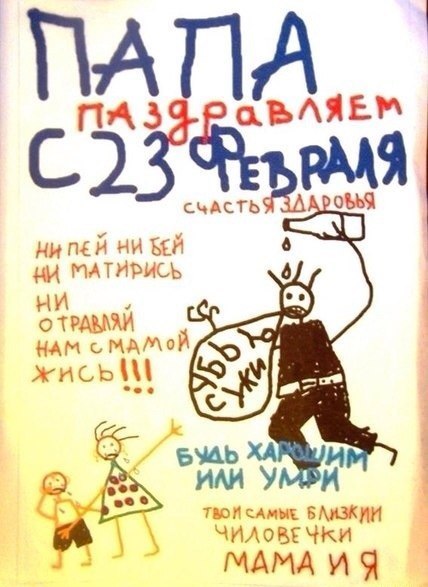 ПАПА
ПАЗДРАВЛЯЕМ
С 23 ФЕВРАЛЯ
СЧАСТЬЯ ЗДАРОВЬЯ
НИ ПЕЙ НИ БЕЙ
НИ МАТИРИСЬ
НИ
ОТРАВЛЯЙ
НАМ С МАМОЙ
ЖИСЬ!!!
УБЬЮ
СУКИ
БУДЬ ХАРОШИМ
ИЛИ УМРИ
ТВОИ САМЫЕ БЛИЗКИИ
ЧИЛОВЕЧКИ
МАМА И Я